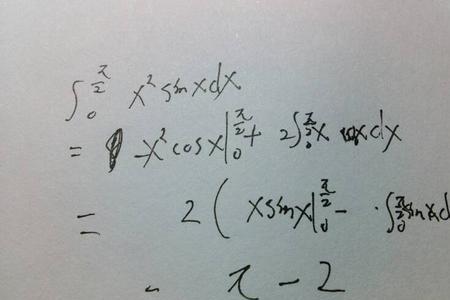 ∫₀^(π/2) x² sin x dx
= -x² cos x |₀^(π/2) + 2∫₀^(π/2) x cos x dx
= 2 ( x sin x |₀^(π/2) - ∫₀^(π/2) sin x d
= π - 2